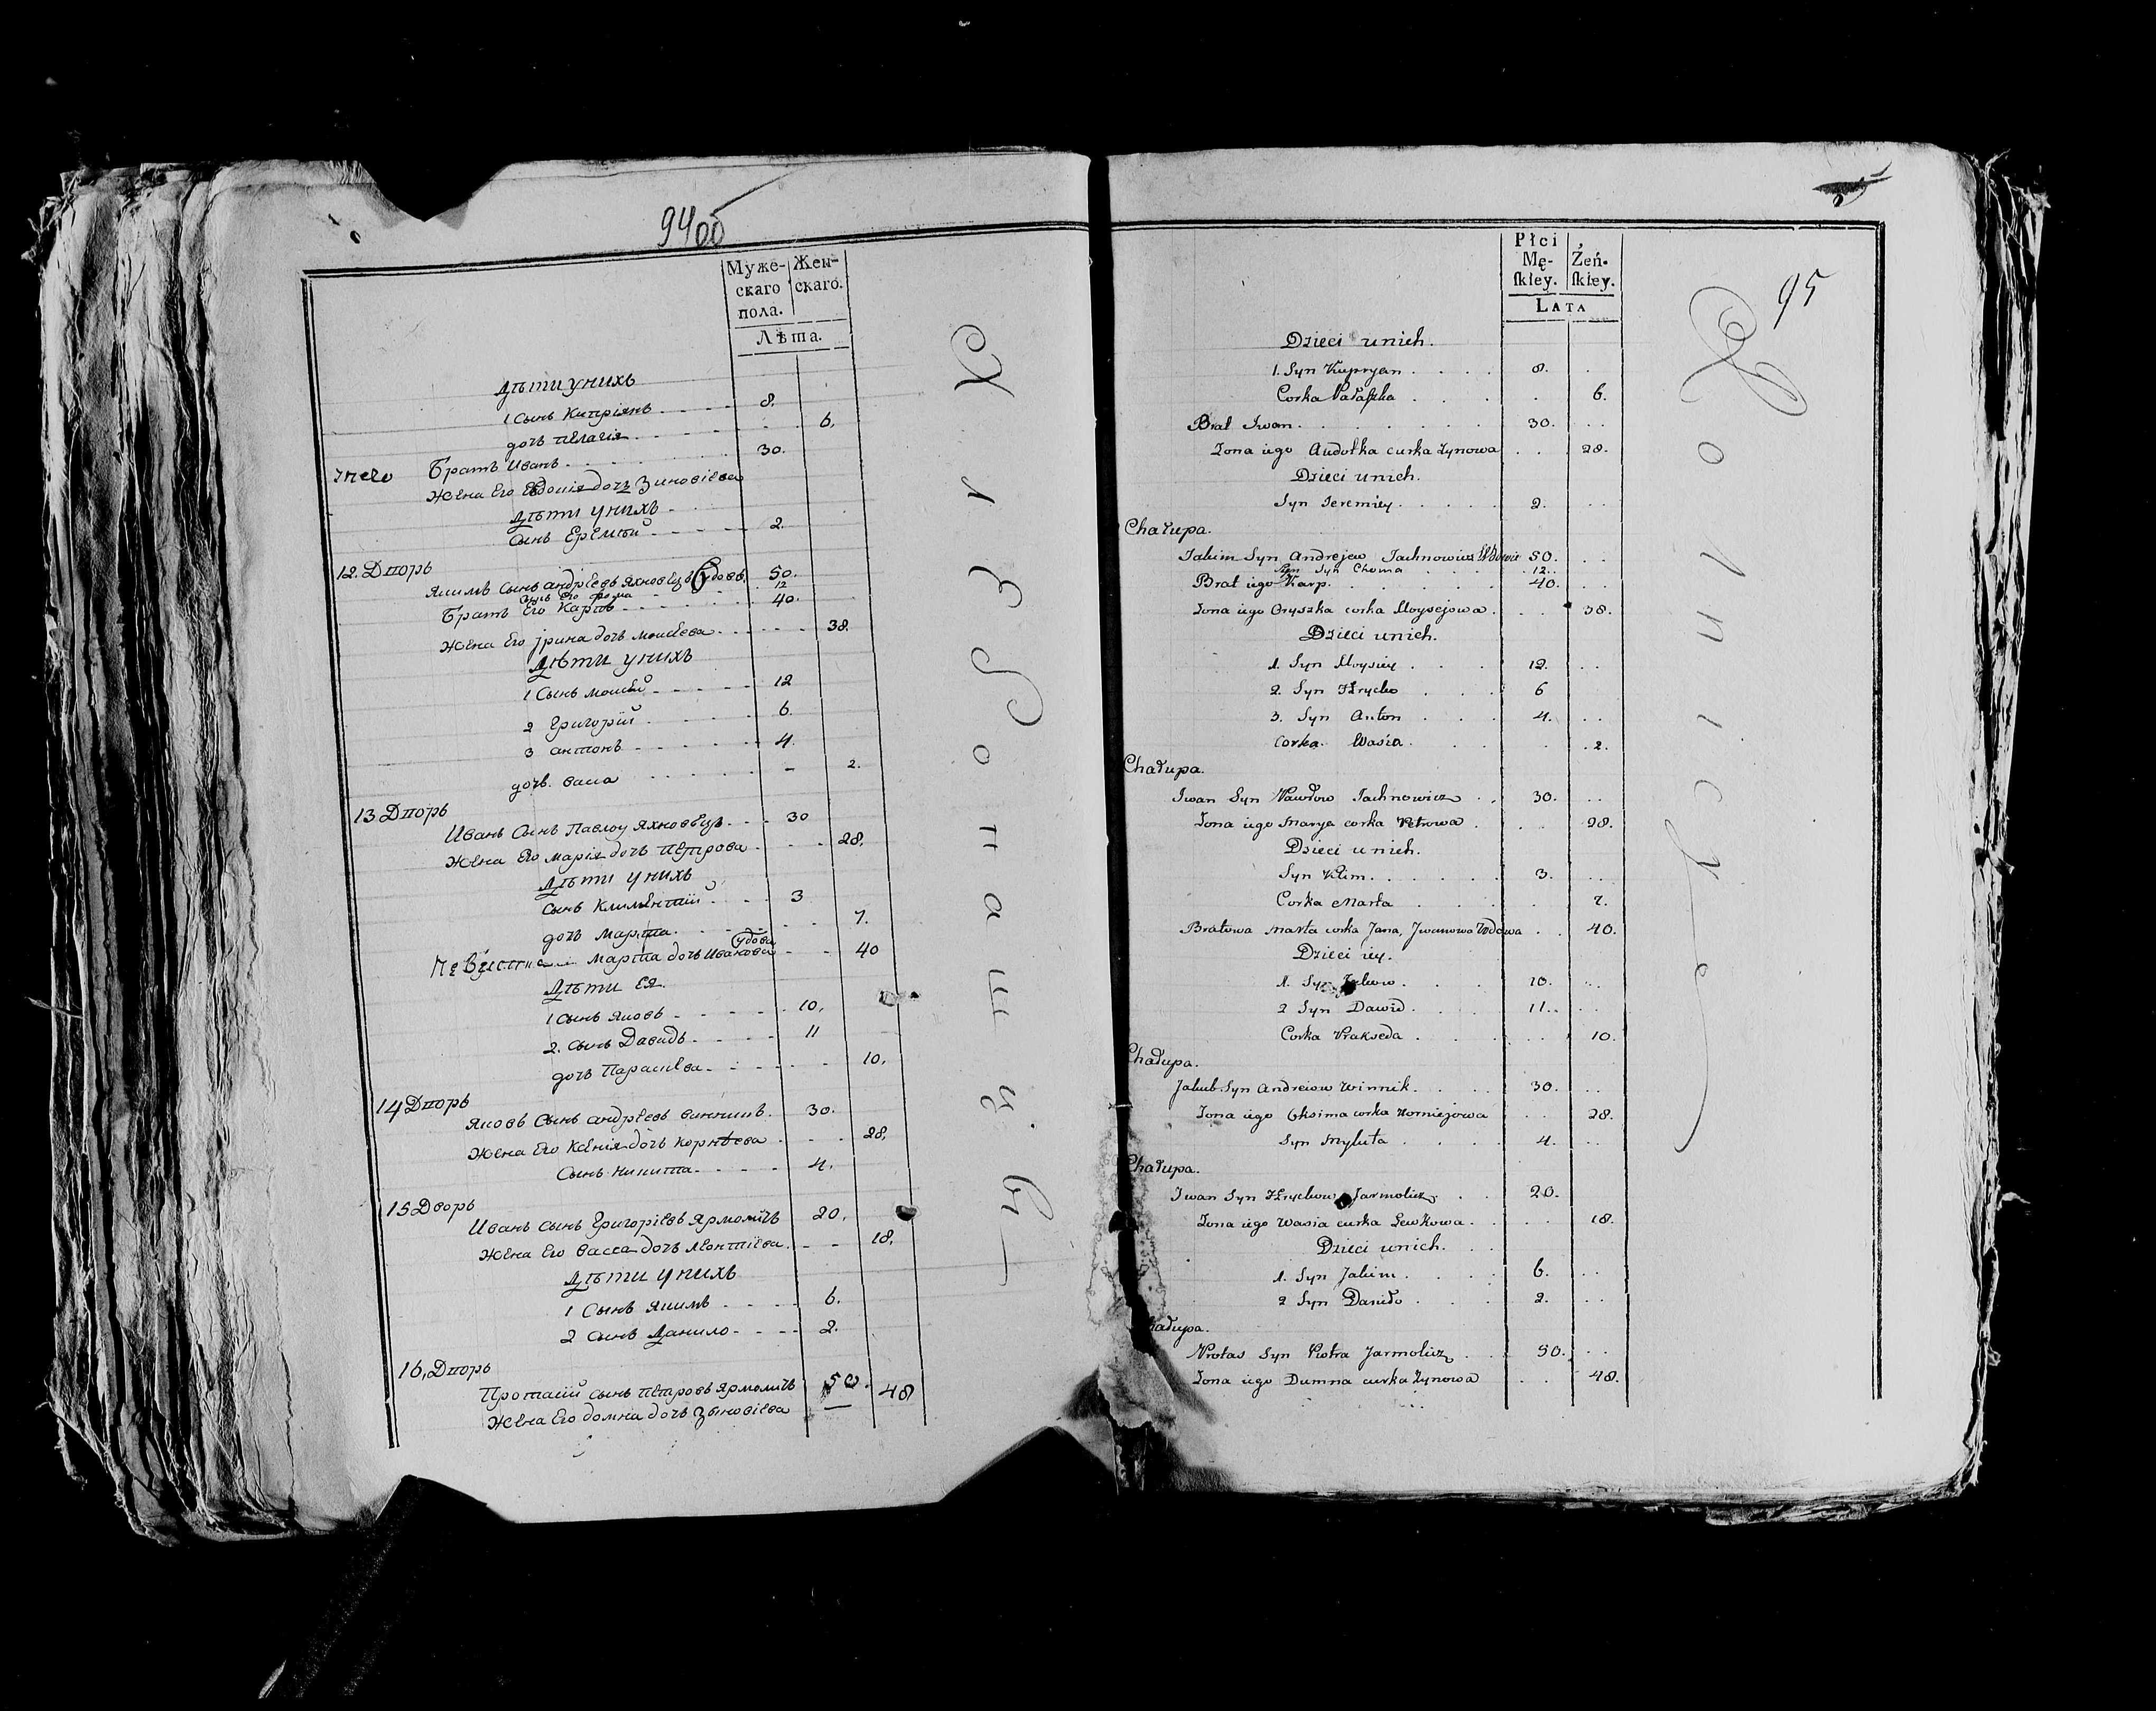 94об
Муже- Жен-
скаго скаго.
пола.
Лѣта.
Дѣти унихъ
1 Сынъ Кипріянъ 8.
дочь пелагія 6.
Братъ Иванъ 30.
Жена Его Евдокія дочь Зиновіева
Дѣти унихъ
Сынъ Еремѣй 2.
12. Дворъ
Якимъ Сынъ андрѣевъ Яхновецъ удовъ 50.
Сынъ Его фома 12
Братъ Его Карпъ 40.
Жена Его Ірина дочь моисѣева 38.
Дѣти унихъ
1 Сынъ моисѣй 12
2 Григорій 6.
3 антонъ 4.
дочь васса 2.
13 Дворъ
Иванъ Сынъ Павлоу Яхновецъ 30
Жена Его марія дочь петрова 28.
Дѣти унихъ
Сынъ климентій 3
дочь марѳа 7.
Невѣстка марѳа дочь Иванова удова 40
Дѣти Ея.
1 Сынъ яковъ 10.
2. Сынъ Давидъ 11
дочь Параскева 10.
14 Дворъ
Яковъ Сынъ андрѣевъ винникъ 30.
Жена Его Ксенія дочь корнѣева 28.
Сынъ никита 4.
15 Дворъ
Иванъ Сынъ Григоріевъ Ярмоличъ 20.
Жена Его Васса дочь леонтіева 18.
Дѣти унихъ
1 Сынъ якимъ 6.
2 Сынъ Данило 2.
16, Дворъ
Протасій сынъ петровъ Ярмоличъ 50.
Жена Его домна дочь Зѣновіева 48
95
Płci
Mę- Żeń-
ſkiey. ſkiey.
LATA
Dzieci unich.
1. Syn Kupryan 8.
Corka Pałaszka 6.
Brat Iwan 30.
Zona iego Audotka curka Zynowa 28.
Dzieci unich.
Syn Ieremiey 2.
Chałupa.
Iakim Syn Andrejew Iachnowicz Wdowie 50.
Syn Choma 12.
Brat iego Karp. 40.
Zona iego Oryszka corka Moysejowa 38.
Dzieci unich.
1. Syn Moysiey 12.
2. Syn Hrycko 6
3. Syn Anton 4.
Corka. Wasia 2.
Chałupa.
Iwan Syn Pawłow Iachnowicz 30.
Zona iego Marya corka Petrowa 28.
Dzieci unich.
Syn Klim. 3.
Corka Marta 7.
Bratowa Marta corka Jana, Jwanowa Wdowa 40.
Dzieci iey.
1. Syn Jakow 10.
2 Syn Dawid 11.
Corka Prakseda 10.
Chałupa.
Jakub Syn Andreiow Winnik 30.
Zona iego Oksima corka Korniejowa 28.
Syn Mykita 4.
Chałupa.
Iwan Syn Hryckow Jarmolicz 20.
Zona iego Wasia curka Lewkowa 18.
Dzieci unich.
1. Syn Jakim 6.
2 Syn Daniło 2.
Chałupa.
Protas Syn Piotra Jarmolicz 50.
Zona iego Dumna curka Zynowa 48.